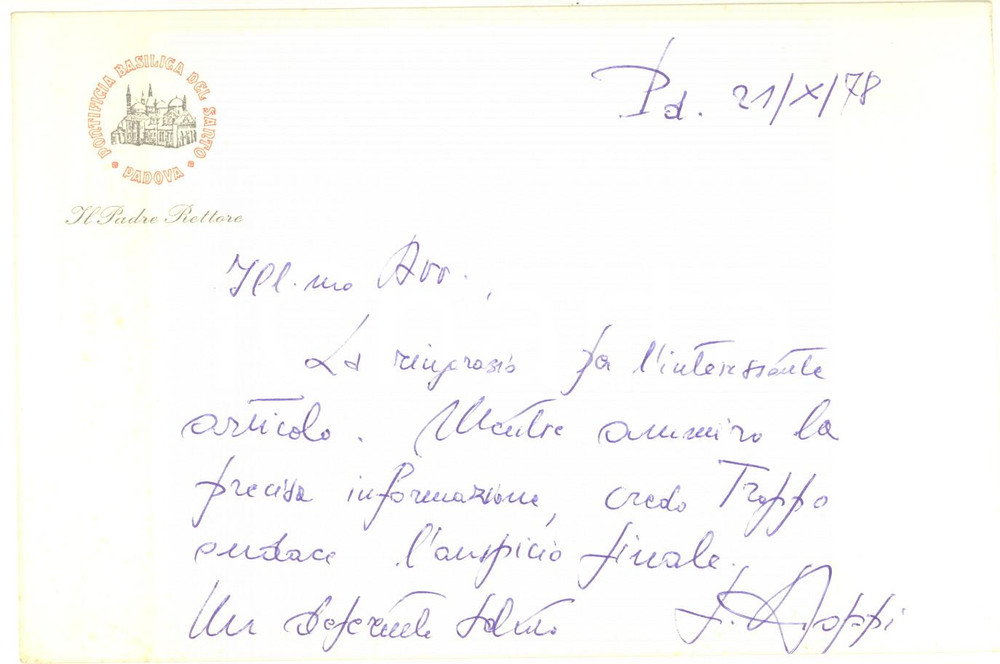 PONTIFICIA BASILICA DEL SANTO
• PADOVA •
Il Padre Rettore
Pd. 21/X/78
Ill.mo Avv.,
La ringrazio per l'interessante
articolo. Mentre ammiro la
precisa informazione, credo troppo
audace l'auspicio finale.
Un deferente saluto